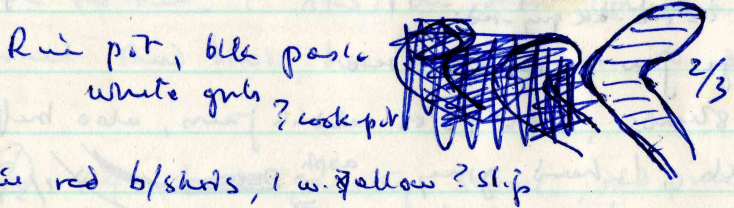 Rim pot, blk paste
white grits
? cook pot
2/3
red b/sherds, 1 w. yallow ? slip